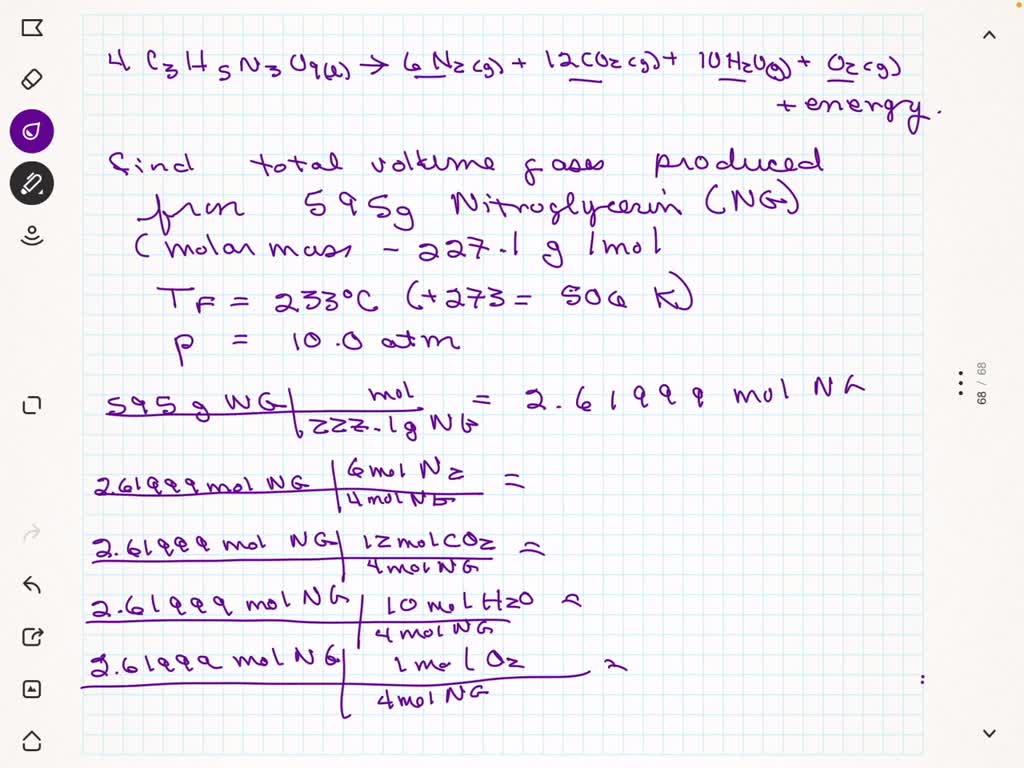 4 C3H5N3O9(l) → 6 N2(g) + 12CO2(g) + 10H2O(g) + O2(g)
+ energy.
find total volume gases produced
from 595g Nitroglycerin (NG)
(molar mass - 227.1 g/mol
TF = 233°C (+273 = 506 K)
P = 10.0 atm
595 g NG | mol = 2.61999 mol NG
222.1g NG
2.61999 mol NG | 6 mol N2 =
4 mol NG
2.61999 mol NG | 12 mol CO2 =
4 mol NG
2.61999 mol NG | 10 mol H2O =
4 mol NG
2.61999 mol NG | 1 mol O2 =
4 mol NG
68 / 68